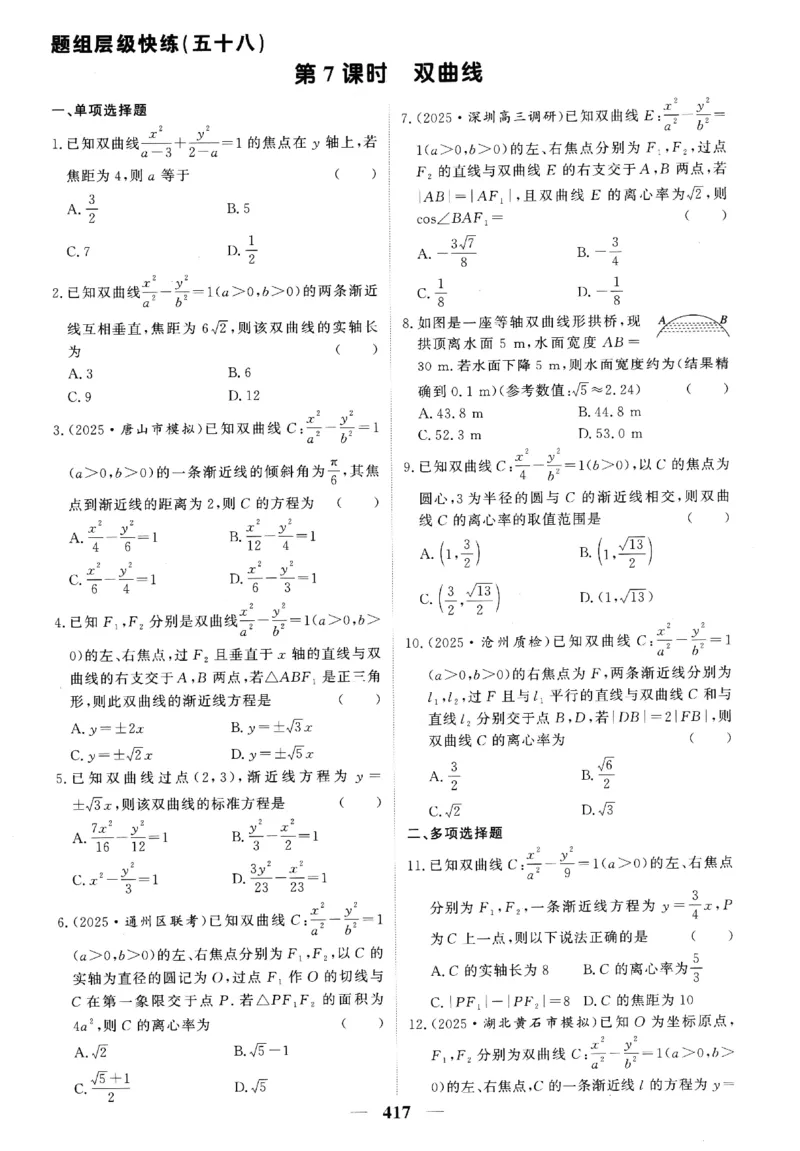 题组层级快练(五十八)
第7课时 双曲线
一、单项选择题
1.已知双曲线x²/(a-3)+y²/(2-a)=1的焦点在y轴上,若
焦距为4,则a等于 ( )
A.3/2 B.5
C.7 D.1/2
2.已知双曲线x²/a²-y²/b²=1(a>0,b>0)的两条渐近
线互相垂直,焦距为6√2,则该双曲线的实轴长
为 ( )
A.3 B.6
C.9 D.12
3.(2025·唐山市模拟)已知双曲线C:x²/a²-y²/b²=1
(a>0,b>0)的一条渐近线的倾斜角为π/6,其焦
点到渐近线的距离为2,则C的方程为 ( )
A.x²/4-y²/6=1 B.x²/12-y²/4=1
C.x²/6-y²/4=1 D.x²/6-y²/3=1
4.已知F₁,F₂分别是双曲线x²/a²-y²/b²=1(a>0,b>
0)的左、右焦点,过F₂且垂直于x轴的直线与双
曲线的右支交于A,B两点,若△ABF₁是正三角
形,则此双曲线的渐近线方程是 ( )
A.y=±2x B.y=±√3x
C.y=±√2x D.y=±√5x
5.已知双曲线过点(2,3),渐近线方程为y=
±√3x,则该双曲线的标准方程是 ( )
A.7x²/16-y²/12=1 B.y²/3-x²/2=1
C.x²-y²/3=1 D.3y²/23-x²/23=1
6.(2025·通州区联考)已知双曲线C:x²/a²-y²/b²=1
(a>0,b>0)的左、右焦点分别为F₁,F₂,以C的
实轴为直径的圆记为O,过点F₁作O的切线与
C在第一象限交于点P.若△PF₁F₂的面积为
4a²,则C的离心率为 ( )
A.√2 B.√5-1
C.(√5+1)/2 D.√5
7.(2025·深圳高三调研)已知双曲线E:x²/a²-y²/b²=
1(a>0,b>0)的左、右焦点分别为F₁,F₂,过点
F₂的直线与双曲线E的右支交于A,B两点,若
|AB|=|AF₁|,且双曲线E的离心率为√2,则
cos∠BAF₁= ( )
A.-3√7/8 B.-3/4
C.1/8 D.-1/8
8.如图是一座等轴双曲线形拱桥,现 A B
拱顶离水面5 m,水面宽度AB=
30 m.若水面下降5 m,则水面宽度约为(结果精
确到0.1 m)(参考数值:√5≈2.24) ( )
A.43.8 m B.44.8 m
C.52.3 m D.53.0 m
9.已知双曲线C:x²/4-y²/b²=1(b>0),以C的焦点为
圆心,3为半径的圆与C的渐近线相交,则双曲
线C的离心率的取值范围是 ( )
A.(1,3/2) B.(1,√13/2)
C.(3/2,√13/2) D.(1,√13)
10.(2025·沧州质检)已知双曲线C:x²/a²-y²/b²=1
(a>0,b>0)的右焦点为F,两条渐近线分别为
l₁,l₂,过F且与l₁平行的直线与双曲线C和与
直线l₂分别交于点B,D,若|DB|=2|FB|,则
双曲线C的离心率为 ( )
A.3/2 B.√6/2
C.√2 D.√3
二、多项选择题
11.已知双曲线C:x²/a²-y²/9=1(a>0)的左、右焦点
分别为F₁,F₂,一条渐近线方程为y=3/4x,P
为C上一点,则以下说法正确的是 ( )
A.C的实轴长为8 B.C的离心率为5/3
C.|PF₁|-|PF₂|=8 D.C的焦距为10
12.(2025·湖北黄石市模拟)已知O为坐标原点,
F₁,F₂分别为双曲线C:x²/a²-y²/b²=1(a>0,b>
0)的左、右焦点,C的一条渐近线l的方程为y=
— 417 —